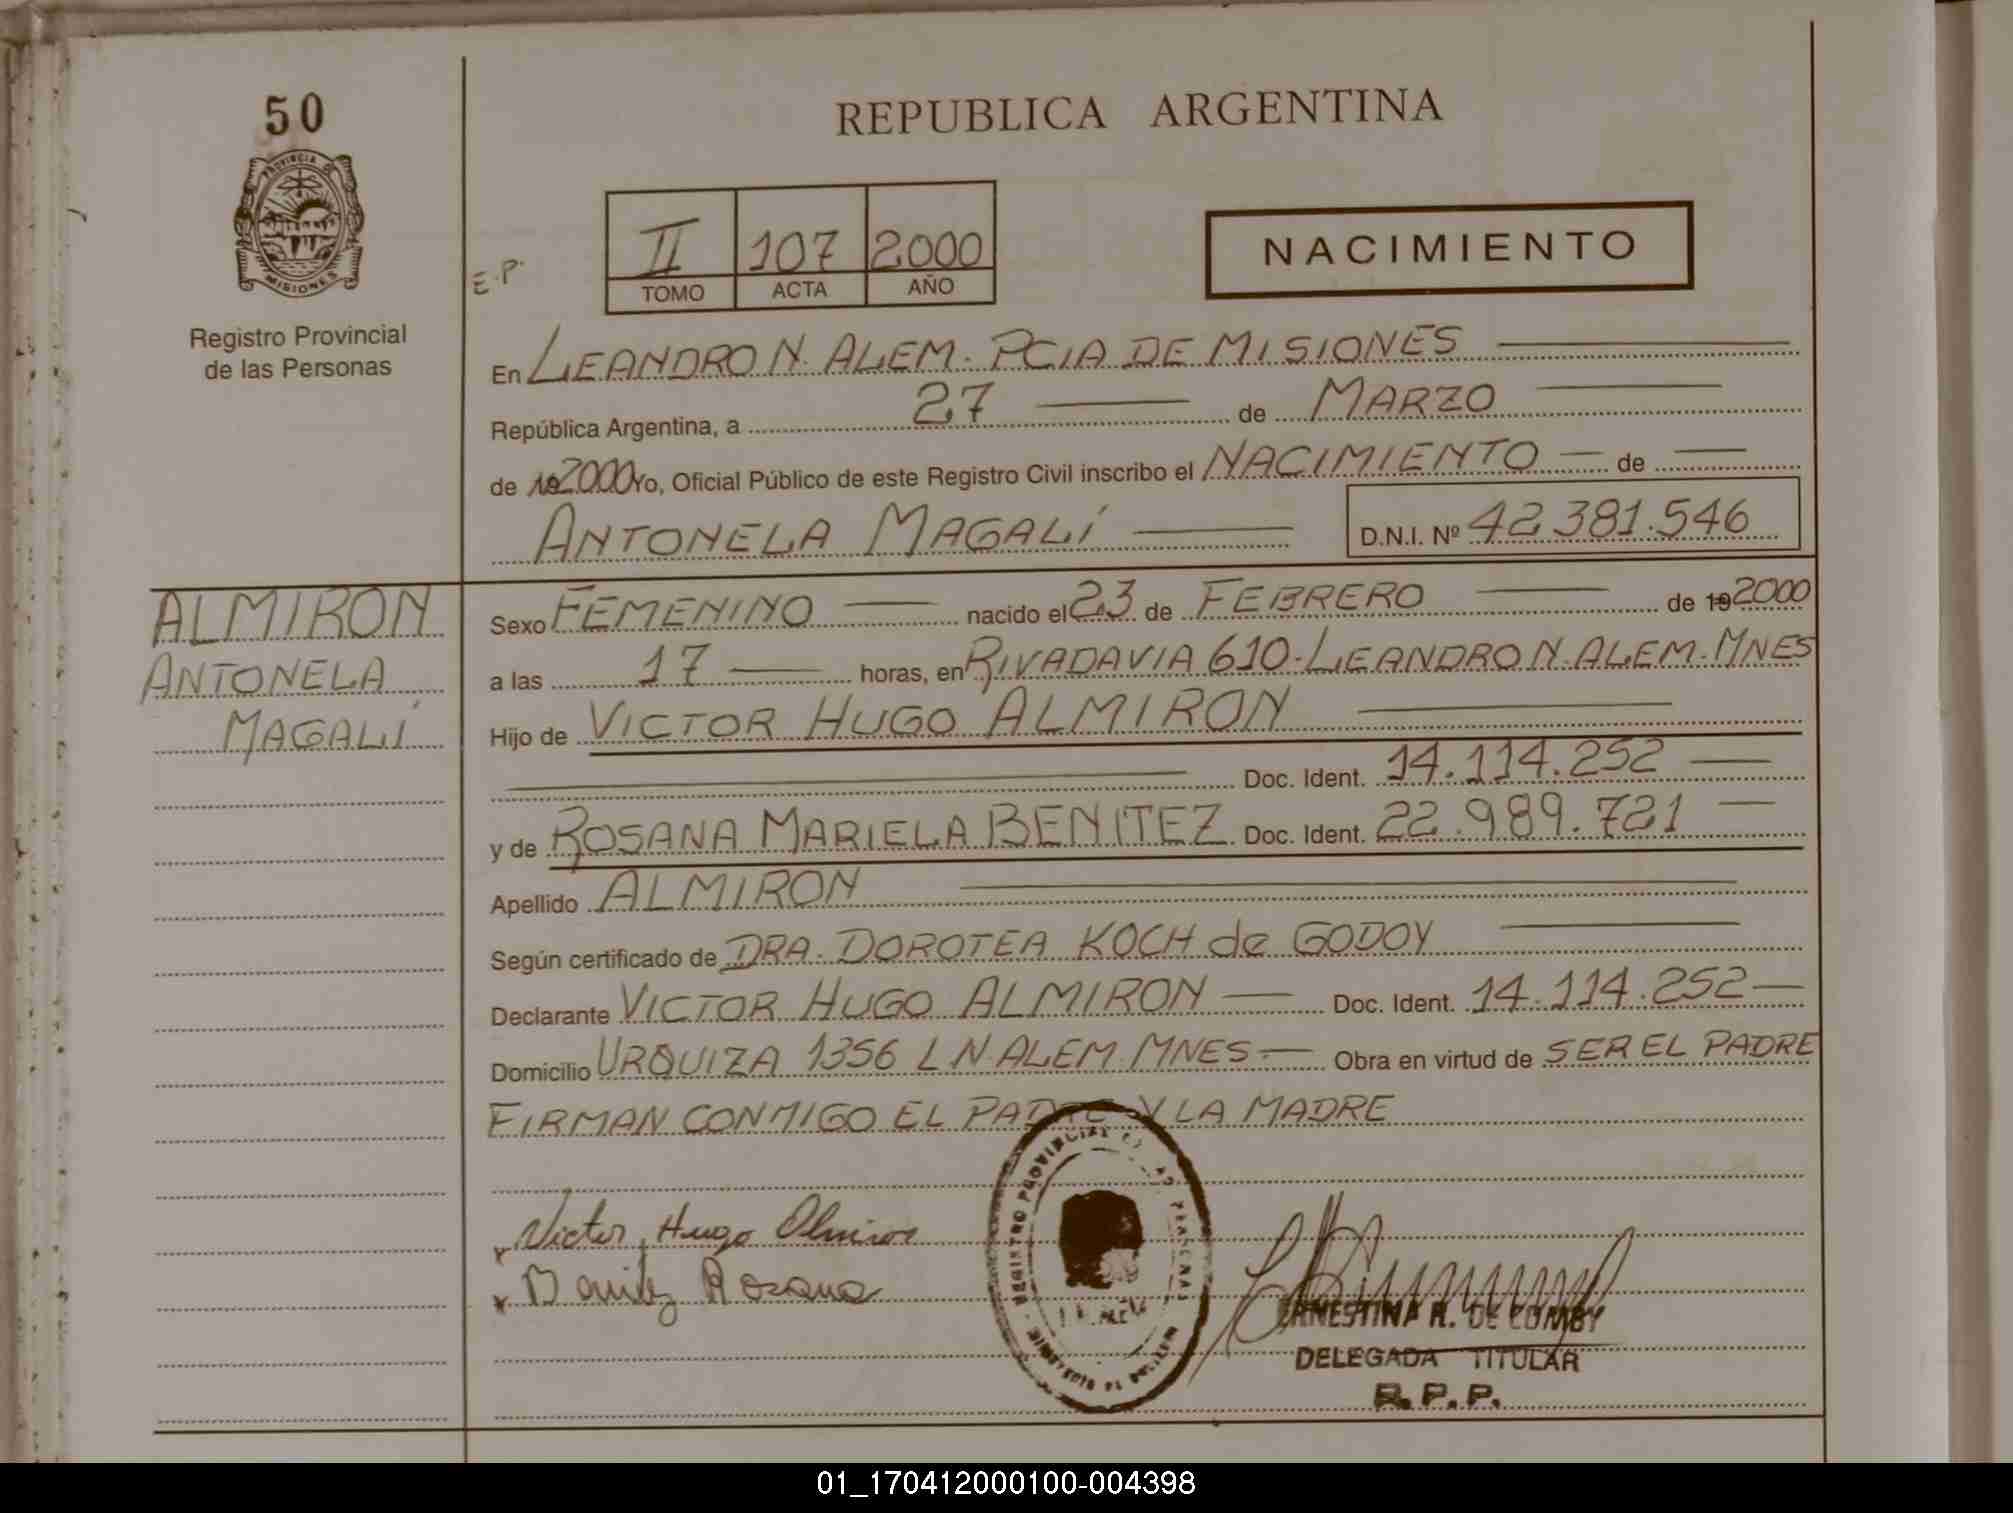 50
REPUBLICA ARGENTINA
PROVINCIA DE
MISIONES
Registro Provincial
de las Personas
E.P.
II 107 2000
TOMO ACTA AÑO
NACIMIENTO
En LEANDRO N. ALEM. PCIA DE MISIONES
República Argentina, a 27 de MARZO
de 192000 Yo, Oficial Público de este Registro Civil inscribo el NACIMIENTO de
ANTONELA MAGALÍ D.N.I. Nº 42.381.546
ALMIRON
ANTONELA
MAGALÍ
Sexo FEMENINO nacido el 23 de FEBRERO de 192000
a las 17 horas, en RIVADAVIA 610-LEANDRO N. ALEM. MNES
Hijo de VICTOR HUGO ALMIRON
Doc. Ident. 14.114.252
y de ROSANA MARIELA BENITEZ Doc. Ident. 22.989.721
Apellido ALMIRON
Según certificado de DRA. DOROTEA KOCH de GODOY
Declarante VICTOR HUGO ALMIRON Doc. Ident. 14.114.252
Domicilio URQUIZA 1356 L N. ALEM. MNES Obra en virtud de SER EL PADRE
FIRMAN CONMIGO EL PADRE Y LA MADRE
Victor Hugo Almiron
Benitez Rosana
REGISTRO PROVINCIAL
ERNESTINA R. DE COMBY
DELEGADA TITULAR
R.P.P.
01_170412000100-004398